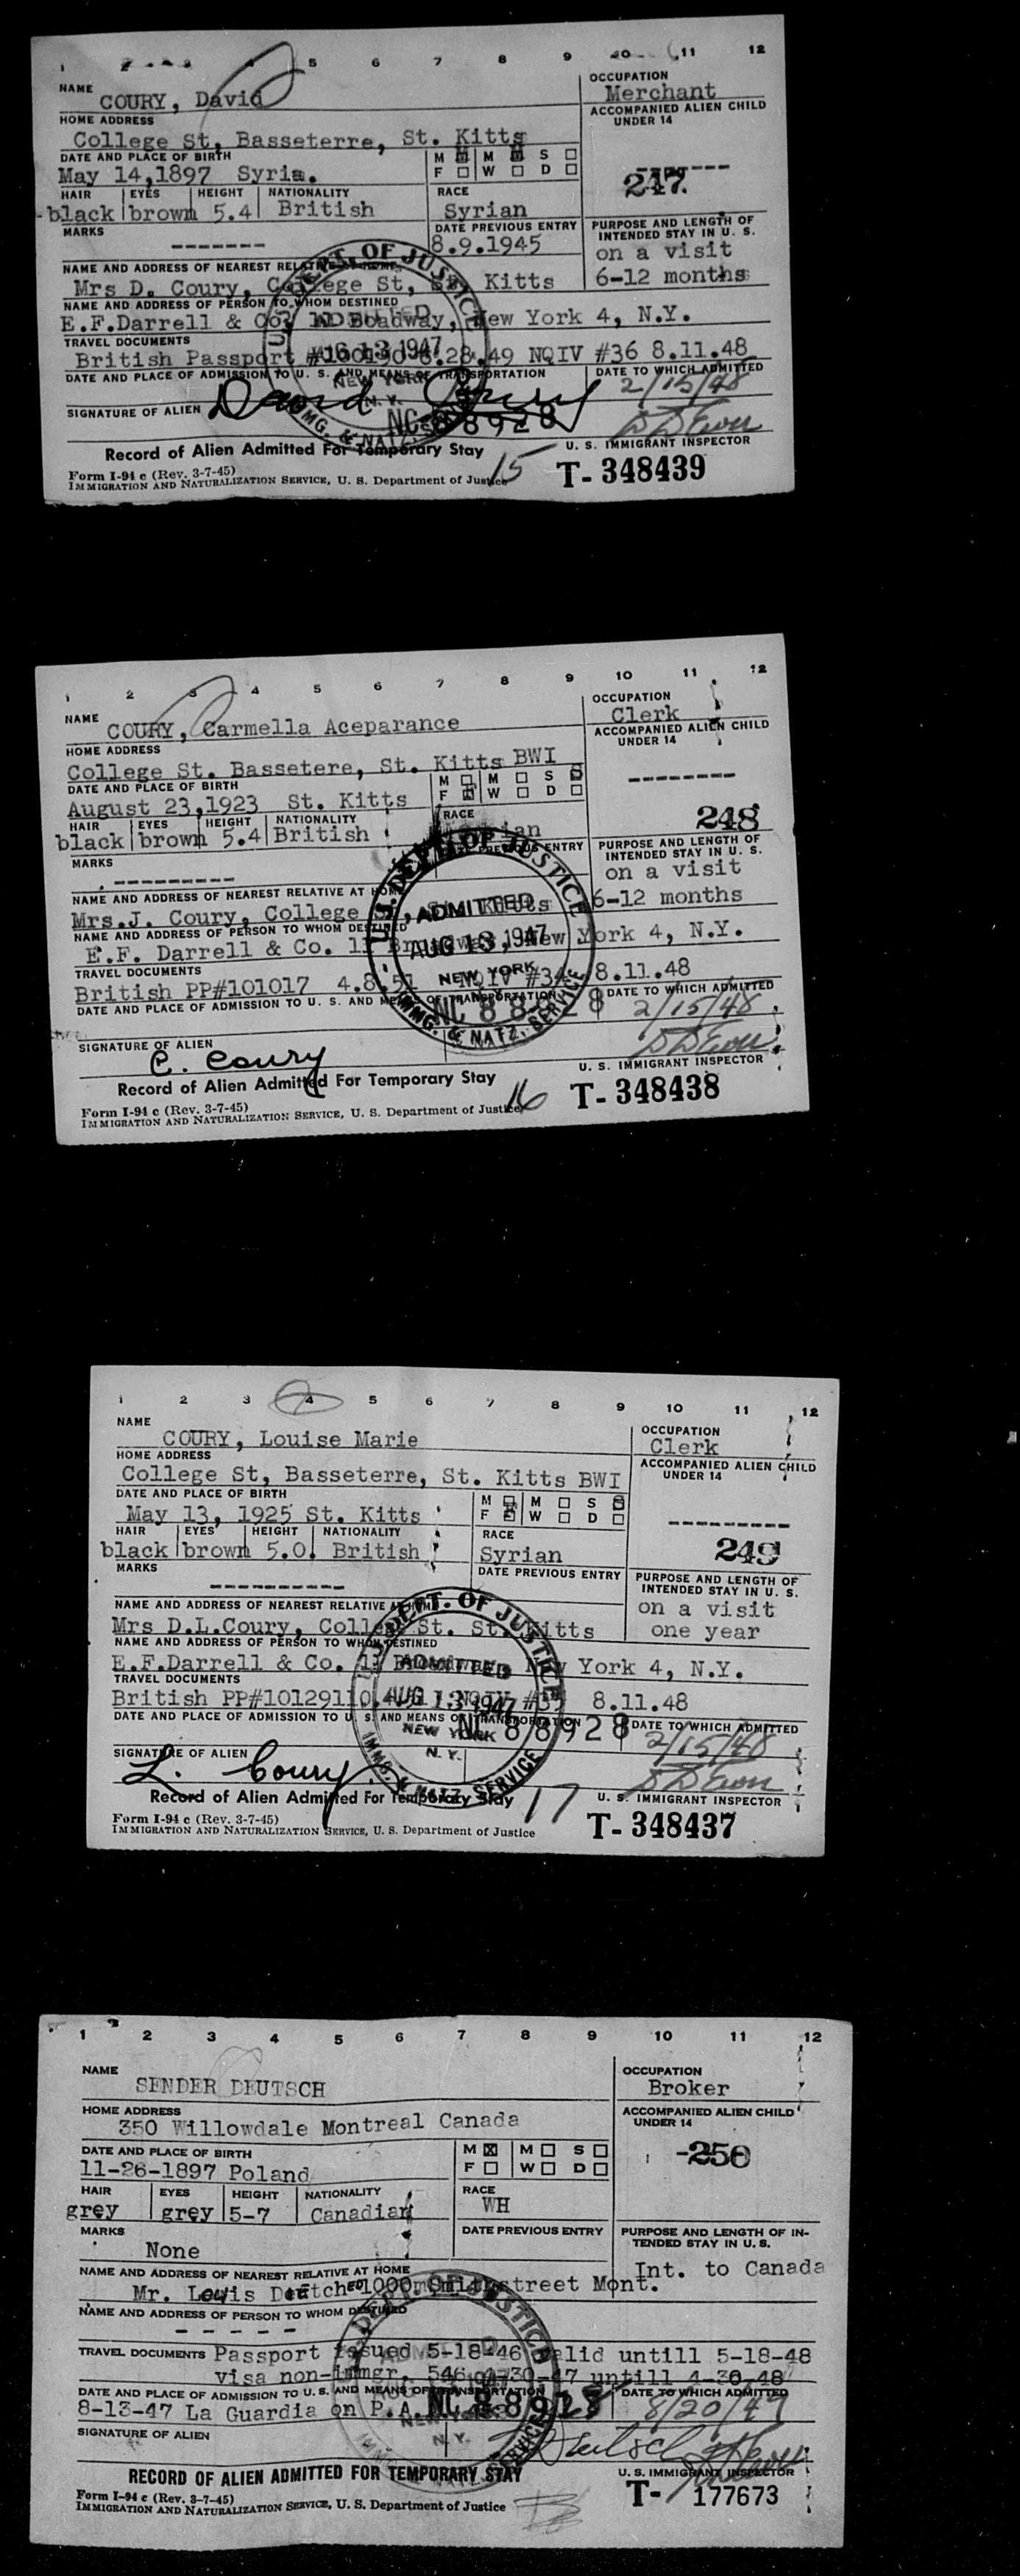 1 2 3 5 6 7 8 9 10 11 12
NAME COURY, David
OCCUPATION Merchant
HOME ADDRESS
College St, Basseterre, St. Kitts
ACCOMPANIED ALIEN CHILD UNDER 14
DATE AND PLACE OF BIRTH
May 14,1897 Syria.
M M S
F W D
247
HAIR EYES HEIGHT NATIONALITY RACE
black brown 5.4 British Syrian
MARKS -------
DATE PREVIOUS ENTRY
8.9.1945
PURPOSE AND LENGTH OF INTENDED STAY IN U. S.
on a visit
6-12 months
NAME AND ADDRESS OF NEAREST RELATIVE AT HOME
Mrs D. Coury, College St, St. Kitts
NAME AND ADDRESS OF PERSON TO WHOM DESTINED
E.F.Darrell & Co. 11 Boadway, New York 4, N.Y.
TRAVEL DOCUMENTS
British Passport 6.28.49 NQIV #36 8.11.48
DATE AND PLACE OF ADMISSION TO U. S. AND MEANS OF TRANSPORTATION
DATE TO WHICH ADMITTED
2/15/48
U.S. DEPT. OF JUSTICE
ADMITTED
13 1947
NEW YORK
N.Y.
IMMG. & NATZ. SERVICE
NC 88928
SIGNATURE OF ALIEN David Coury
U. S. IMMIGRANT INSPECTOR
Record of Alien Admitted For Temporary Stay
15
Form I-94 c (Rev. 3-7-45)
IMMIGRATION AND NATURALIZATION SERVICE, U. S. Department of Justice
T- 348439
1 2 3 4 5 6 7 8 9 10 11 12
NAME COURY, Carmella Aceparance
OCCUPATION Clerk
HOME ADDRESS
College St. Bassetere, St. Kitts BWI
ACCOMPANIED ALIEN CHILD UNDER 14
--------
DATE AND PLACE OF BIRTH
August 23,1923 St. Kitts
M M S
F W D
248
HAIR EYES HEIGHT NATIONALITY RACE
black brown 5.4 British
MARKS ---------
DATE PREVIOUS ENTRY
PURPOSE AND LENGTH OF INTENDED STAY IN U. S.
on a visit
6-12 months
NAME AND ADDRESS OF NEAREST RELATIVE AT HOME
Mrs.J. Coury, College St, St. Kitts
NAME AND ADDRESS OF PERSON TO WHOM DESTINED
E.F. Darrell & Co. 11 Broadway, New York 4, N.Y.
TRAVEL DOCUMENTS
British PP#101017 4.8.51 NQIV #34 8.11.48
DATE AND PLACE OF ADMISSION TO U. S. AND MEANS OF TRANSPORTATION
DATE TO WHICH ADMITTED
2/15/48
U.S. DEPT. OF JUSTICE
ADMITTED
AUG 13 1947
NEW YORK
IMMG. & NATZ. SERVICE
NC 88928
SIGNATURE OF ALIEN
C. Coury
U. S. IMMIGRANT INSPECTOR
Record of Alien Admitted For Temporary Stay
16
Form I-94 c (Rev. 3-7-45)
IMMIGRATION AND NATURALIZATION SERVICE, U. S. Department of Justice
T- 348438
1 2 3 4 5 6 7 8 9 10 11 12
NAME
COURY, Louise Marie
OCCUPATION
Clerk
HOME ADDRESS
College St, Basseterre, St. Kitts BWI
ACCOMPANIED ALIEN CHILD UNDER 14
---------
DATE AND PLACE OF BIRTH
May 13, 1925 St. Kitts
M M S
F W D
249
HAIR EYES HEIGHT NATIONALITY RACE
black brown 5.0. British Syrian
MARKS ----------
DATE PREVIOUS ENTRY
PURPOSE AND LENGTH OF INTENDED STAY IN U. S.
on a visit
one year
NAME AND ADDRESS OF NEAREST RELATIVE AT HOME
Mrs D.L.Coury, College St. St. Kitts
NAME AND ADDRESS OF PERSON TO WHOM DESTINED
E.F.Darrell & Co. 11 Broadway New York 4, N.Y.
TRAVEL DOCUMENTS
British 8.11.48
DATE AND PLACE OF ADMISSION TO U. S. AND MEANS OF TRANSPORTATION
DATE TO WHICH ADMITTED
2/15/48
U.S. DEPT. OF JUSTICE
ADMITTED
AUG 13 1947
NEW YORK
N.Y.
IMMG. & NATZ. SERVICE
NC 88928
SIGNATURE OF ALIEN
L. Coury
U. S. IMMIGRANT INSPECTOR
Record of Alien Admitted For Temporary Stay
17
Form I-94 c (Rev. 3-7-45)
IMMIGRATION AND NATURALIZATION SERVICE, U. S. Department of Justice
T- 348437
1 2 3 4 5 6 7 8 9 10 11 12
NAME
SENDER DEUTSCH
OCCUPATION
Broker
HOME ADDRESS
350 Willowdale Montreal Canada
ACCOMPANIED ALIEN CHILD UNDER 14
DATE AND PLACE OF BIRTH
11-26-1897 Poland
M M S
F W D
250
HAIR EYES HEIGHT NATIONALITY RACE
grey grey 5-7 Canadian WH
MARKS
None
DATE PREVIOUS ENTRY
PURPOSE AND LENGTH OF INTENDED STAY IN U. S.
Int. to Canada
NAME AND ADDRESS OF NEAREST RELATIVE AT HOME
Mr. Louis street Mont.
NAME AND ADDRESS OF PERSON TO WHOM DESTINED
- - - - -
TRAVEL DOCUMENTS Passport issued 5-18-46 valid untill 5-18-48
visa non-immgr. 546 4-30-47 untill 4-30-48
DATE AND PLACE OF ADMISSION TO U. S. AND MEANS OF TRANSPORTATION
DATE TO WHICH ADMITTED
8-13-47 La Guardia on P.A.
8/20/47
NC 88928
DEPT. OF JUSTICE
ADMITTED
NEW YORK
N.Y.
IMMG. & NATZ. SERVICE
SIGNATURE OF ALIEN
Deutsch
U. S. IMMIGRANT INSPECTOR
RECORD OF ALIEN ADMITTED FOR TEMPORARY STAY
Form I-94 c (Rev. 3-7-45)
IMMIGRATION AND NATURALIZATION SERVICE, U. S. Department of Justice
T- 177673